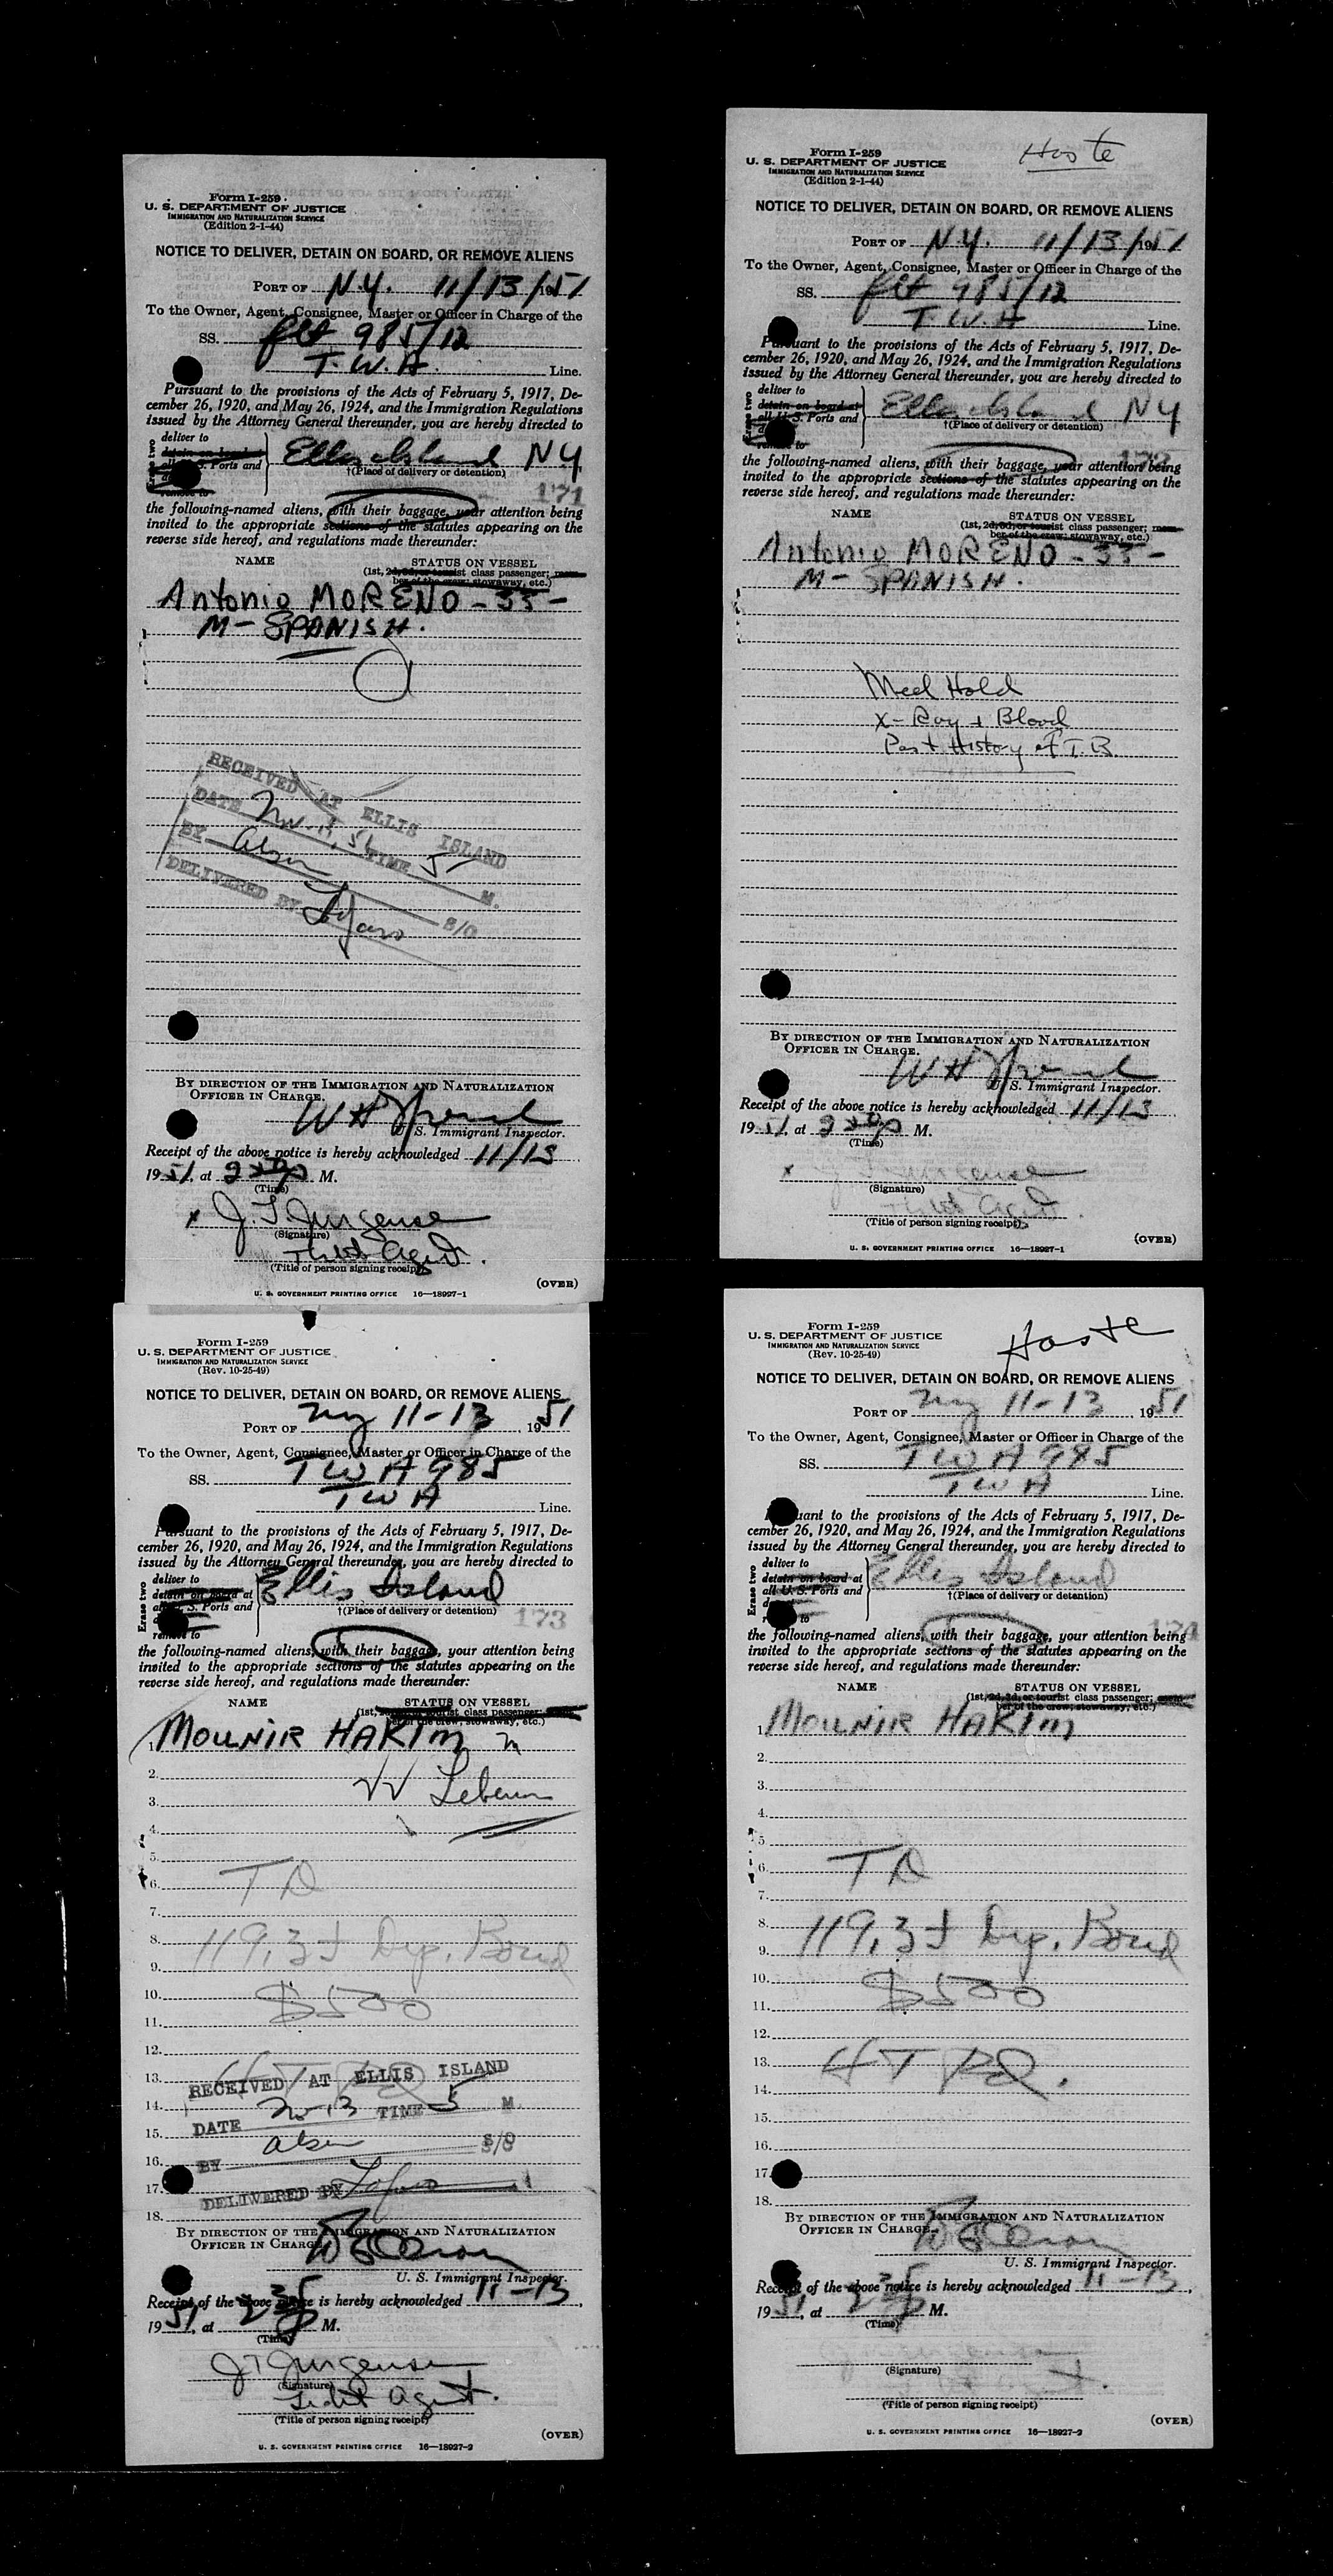 Form I-259
U. S. DEPARTMENT OF JUSTICE
IMMIGRATION AND NATURALIZATION SERVICE
(Edition 2-1-44)
NOTICE TO DELIVER, DETAIN ON BOARD, OR REMOVE ALIENS
PORT OF N.Y. 11/13/1951
To the Owner, Agent, Consignee, Master or Officer in Charge of the
SS. flt 985/12
T.W.A. Line.
Pursuant to the provisions of the Acts of February 5, 1917, De-
cember 26, 1920, and May 26, 1924, and the Immigration Regulations
issued by the Attorney General thereunder, you are hereby directed to
deliver to
detain on board at
S. Ports and
remove to
Erase two
Ellis Island N.Y.
†(Place of delivery or detention)
171
the following-named aliens, with their baggage, your attention being
invited to the appropriate sections of the statutes appearing on the
reverse side hereof, and regulations made thereunder:
NAME STATUS ON VESSEL
(1st, 2d, 3d, or tourist class passenger; mem-
ber of the crew; stowaway, etc.)
Antonio MORENO - 33 -
M - SPANISH.
RECEIVED AT ELLIS ISLAND
DATE Nov. 13, 51 TIME 5 M.
BY S/O
DELIVERED BY
BY DIRECTION OF THE IMMIGRATION AND NATURALIZATION
OFFICER IN CHARGE.
U. S. Immigrant Inspector.
Receipt of the above notice is hereby acknowledged 11/13
1951, at M.
(Time)
x J. T. Jurgense
(Signature)
Agent.
(Title of person signing receipt)
(OVER)
U. S. GOVERNMENT PRINTING OFFICE 16—18927-1
Form I-259
Haste
U. S. DEPARTMENT OF JUSTICE
IMMIGRATION AND NATURALIZATION SERVICE
(Edition 2-1-44)
NOTICE TO DELIVER, DETAIN ON BOARD, OR REMOVE ALIENS
PORT OF N.Y. 11/13/1951
To the Owner, Agent, Consignee, Master or Officer in Charge of the
SS. flt 985/12
T.W.A Line.
Pursuant to the provisions of the Acts of February 5, 1917, De-
cember 26, 1920, and May 26, 1924, and the Immigration Regulations
issued by the Attorney General thereunder, you are hereby directed to
deliver to
detain on board at
all U. S. Ports and
remove to
Erase two
Ellis Island NY
†(Place of delivery or detention)
the following-named aliens, with their baggage, your attention being
invited to the appropriate sections of the statutes appearing on the
reverse side hereof, and regulations made thereunder:
NAME STATUS ON VESSEL
(1st, 2d, 3d, or tourist class passenger; mem-
ber of the crew; stowaway, etc.)
Antonio MORENO - 33 -
M - SPANISH.
Med Hold
X-Ray + Blood
Past History of T.B.
BY DIRECTION OF THE IMMIGRATION AND NATURALIZATION
OFFICER IN CHARGE.
U. S. Immigrant Inspector.
Receipt of the above notice is hereby acknowledged 11/13
1951, at M.
(Time)
x
(Signature)
(Title of person signing receipt)
(OVER)
U. S. GOVERNMENT PRINTING OFFICE 16—18927-1
Form I-259
U. S. DEPARTMENT OF JUSTICE
IMMIGRATION AND NATURALIZATION SERVICE
(Rev. 10-25-49)
NOTICE TO DELIVER, DETAIN ON BOARD, OR REMOVE ALIENS
PORT OF NY 11-13, 1951
To the Owner, Agent, Consignee, Master or Officer in Charge of the
SS. TWA 985
TWA Line.
Pursuant to the provisions of the Acts of February 5, 1917, De-
cember 26, 1920, and May 26, 1924, and the Immigration Regulations
issued by the Attorney General thereunder, you are hereby directed to
deliver to
detain on board at
all U. S. Ports and
remove to
Erase two
Ellis Island
†(Place of delivery or detention)
173
the following-named aliens, with their baggage, your attention being
invited to the appropriate sections of the statutes appearing on the
reverse side hereof, and regulations made thereunder:
NAME STATUS ON VESSEL
(1st, 2d, 3d, or tourist class passenger; mem-
ber of the crew; stowaway, etc.)
1. MOUNIR HAKIM m
2.
3.
4.
5.
6. TD
7.
8.
9. 119,3 Dep. Bond
10.
11. $500
12.
13.
14.
15.
16.
17.
18.
RECEIVED AT ELLIS ISLAND
DATE Nov 13 TIME 5 M.
BY S/O
DELIVERED BY
BY DIRECTION OF THE IMMIGRATION AND NATURALIZATION
OFFICER IN CHARGE.
U. S. Immigrant Inspector.
Receipt of the above notice is hereby acknowledged 11-13,
1951, at 2 35 P M.
(Time)
J T Jurgense
(Signature)
Agent.
(Title of person signing receipt)
(OVER)
U. S. GOVERNMENT PRINTING OFFICE 16—18927-2
Form I-259
Haste
U. S. DEPARTMENT OF JUSTICE
IMMIGRATION AND NATURALIZATION SERVICE
(Rev. 10-25-49)
NOTICE TO DELIVER, DETAIN ON BOARD, OR REMOVE ALIENS
PORT OF NY 11-13, 1951
To the Owner, Agent, Consignee, Master or Officer in Charge of the
SS. TWA 985
TWA Line.
Pursuant to the provisions of the Acts of February 5, 1917, De-
cember 26, 1920, and May 26, 1924, and the Immigration Regulations
issued by the Attorney General thereunder, you are hereby directed to
deliver to
detain on board at
all U. S. Ports and
remove to
Erase two
Ellis Island
†(Place of delivery or detention)
the following-named aliens, with their baggage, your attention being
invited to the appropriate sections of the statutes appearing on the
reverse side hereof, and regulations made thereunder:
NAME STATUS ON VESSEL
(1st, 2d, 3d, or tourist class passenger; mem-
ber of the crew; stowaway, etc.)
1. MOUNIR HAKIM
2.
3.
4.
5.
6. TD
7.
8.
9. 119,3 Dep. Bond
10.
11. $500
12.
13.
14.
15.
16.
17.
18.
BY DIRECTION OF THE IMMIGRATION AND NATURALIZATION
OFFICER IN CHARGE.
U. S. Immigrant Inspector.
Receipt of the above notice is hereby acknowledged 11-13,
1951, at 2 35 P M.
(Time)
(Signature)
(Title of person signing receipt)
(OVER)
U. S. GOVERNMENT PRINTING OFFICE 16—18927-2